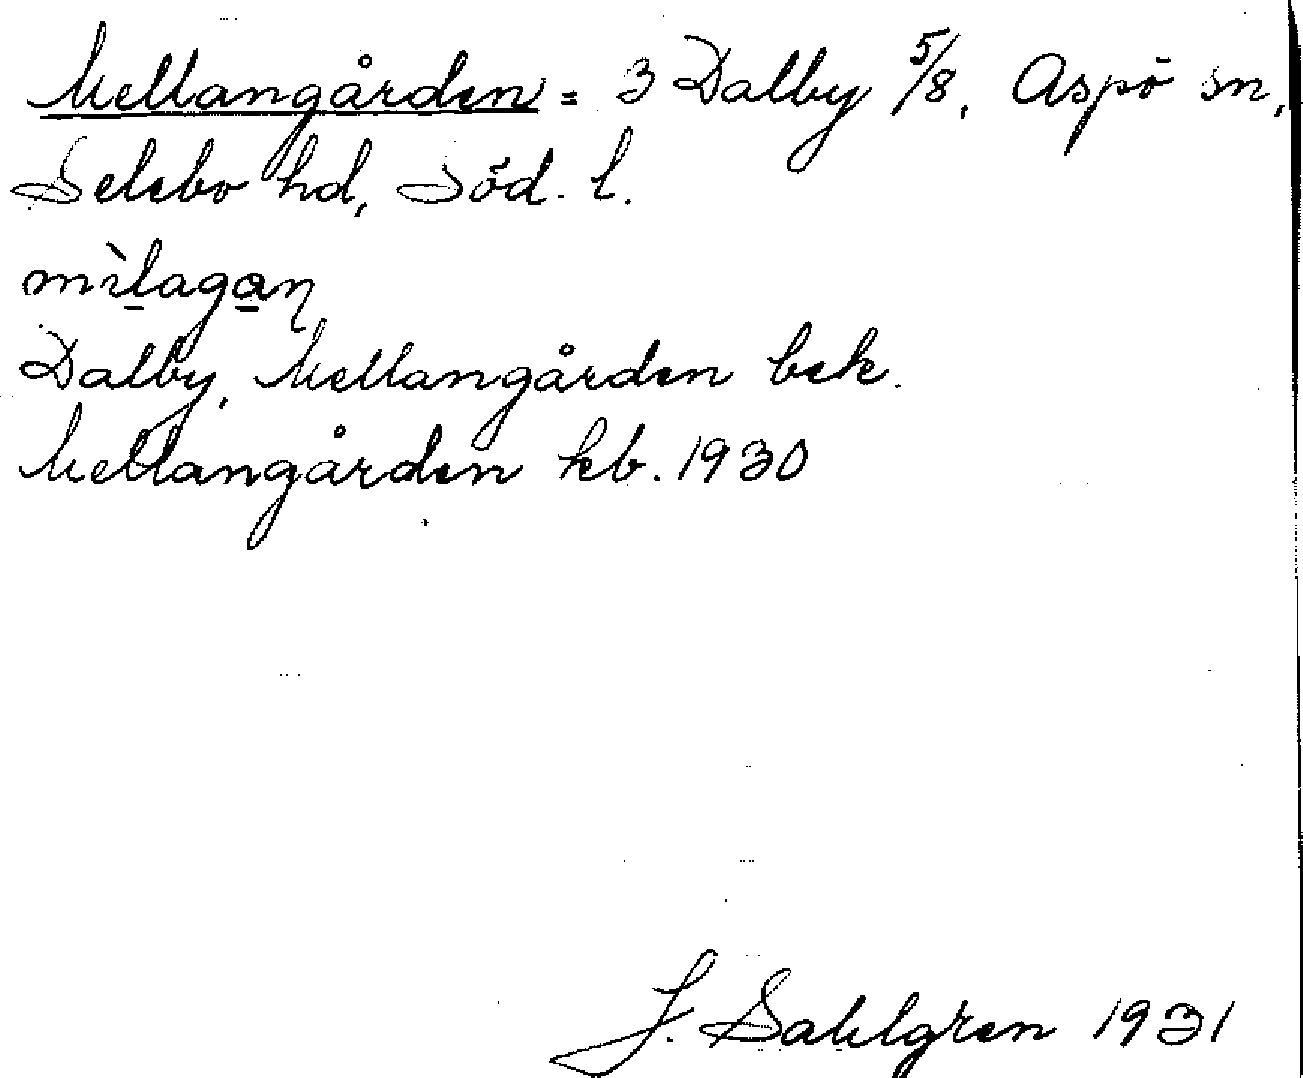 Mellangården = 3 Dalby 5/8, Aspö sn,
Selebo hd, Söd. l.
mìlagaɳ
Dalby, Mellangården bek.
Mellangården kb. 1930
J. Sahlgren 1931